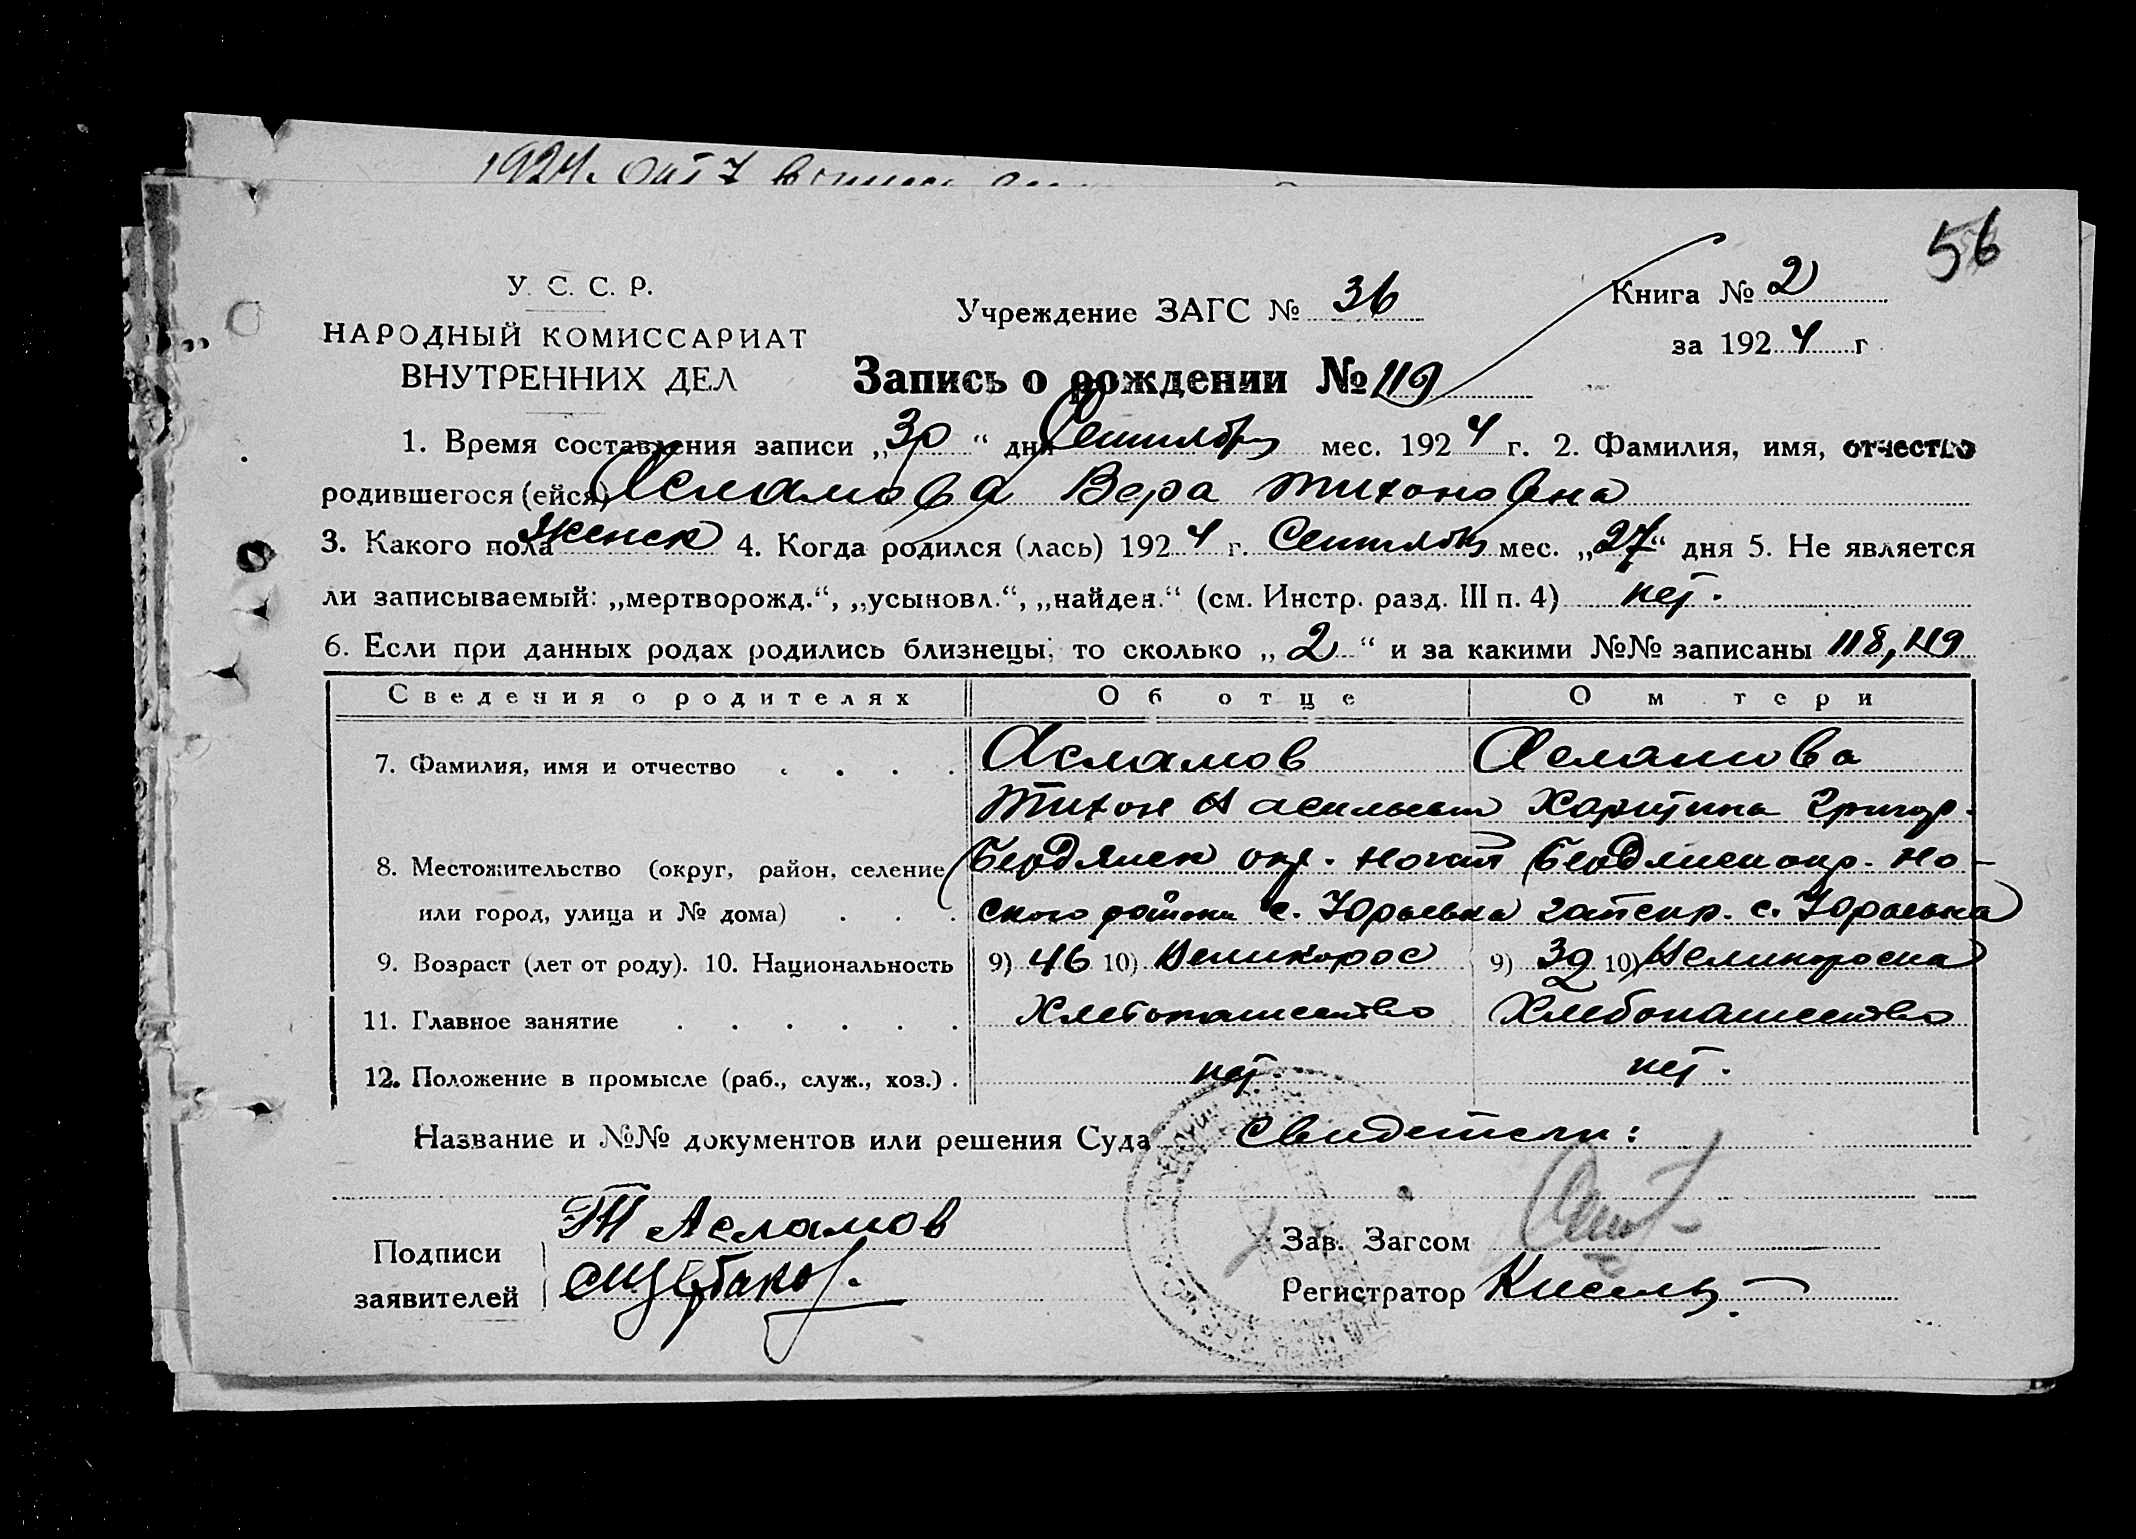 1924. Окт 7
56
У. С. С. Р.
НАРОДНЫЙ КОМИССАРИАТ
ВНУТРЕННИХ ДЕЛ
Учреждение ЗАГС № 36
Книга № 2
за 1924 г
Запись о рождении № 119
1. Время составления записи „30“ дня Сентября мес. 1924 г. 2. Фамилия, имя, отчество
родившегося (ейся) Асламова Вера Тихоновна
3. Какого пола женск 4. Когда родился (лась) 1924 г. Сентября мес. „27“ дня 5. Не является
ли записываемый: „мертворожд.“, „усыновл.“, „найден.“ (см. Инстр. разд. III п. 4) нет.
6. Если при данных родах родились близнецы, то сколько „2“ и за какими №№ записаны 118, 119
Сведения о родителях Об отце О м тери
7. Фамилия, имя и отчество . . . . Асламов Асламова
Тихон Васильев Харитина Григор.
8. Местожительство (округ, район, селение Бердянск окр. Ногай Бердянск окр. Но-
или город, улица и № дома) . . . ского района с. Юрьевка гайскр. с. Юрьевка
9. Возраст (лет от роду). 10. Национальность 9) 46 10) Великорос 9) 39 10) Великороска
11. Главное занятие . . . . . . Хлебопашество Хлебопашество
12. Положение в промысле (раб., служ., хоз.) . нет. нет.
Название и №№ документов или решения Суда Свидетели:
Подписи
заявителей
Т Асламов
Щербаков.
Зав. Загсом
Регистратор Кисель